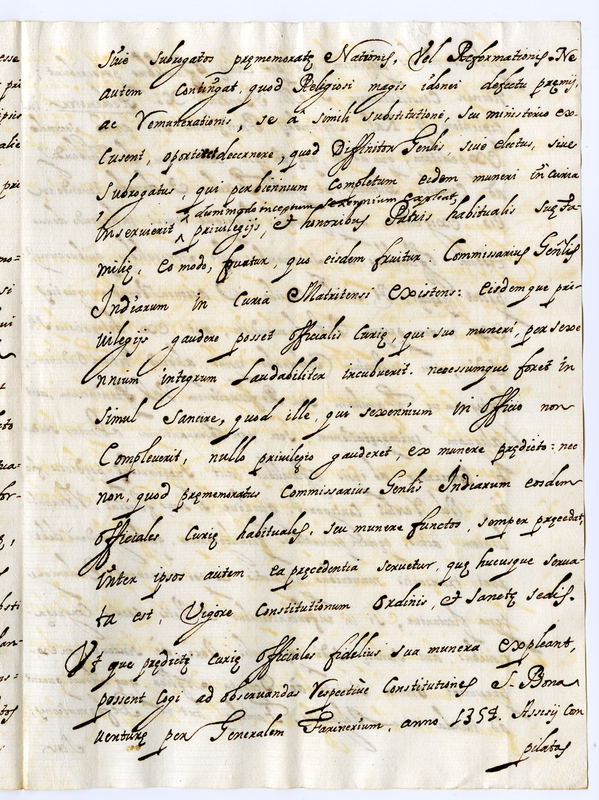 siue subrogatos pręmemoratę Nationis, Vel Reformationis. Ne
autem Contingat, quod Religiosi magis idonei defectu pręmij,
ac Remunerationis, se à simili substitutione, seu ministerio ex-
cusent, oporteret decernere, quod Diffinitor Genlis, siue electus, siue
subrogatus, qui per biennium completum eidem muneri in curia
dummodo inceptum sexennium expleat,
inseruierit privilegijs, et honoribus Patris habitualis suę Fa-
milię, eo modo, fruatur, quo eisdem fruitur Commissarius Genlis
Indiarum in Curia Matritensi existens: eisdemque pri-
uilegijs gaudere posset officialis Curię, qui suo muneri, per sexe
nnium integrum Laudabiliter incubuerit. necessumque foret in
simul sancire, quod ille, qui sexennium in officio non
Compleuerit, nullo privilegio gauderet, ex munere prędicto: nec
non, quod pręmemoratus Commissarius Genlis Indiarum eosdem
officiales Curię habituales, seu munere functos, semper pręcedat,
inter ipsos autem ea pręcedentia seruetur, quę hucusque serua-
ta est, Vigore Constitutionum Ordinis, et sanctę sedis.
Ut que prędictę curię officiales fidelius sua munera expleant,
possent Cogi ad obseruandas respectiuè Constitutiones S. Bona
uenturę per Generalem Farinerium, anno 1354. Assisij Com
pilatas